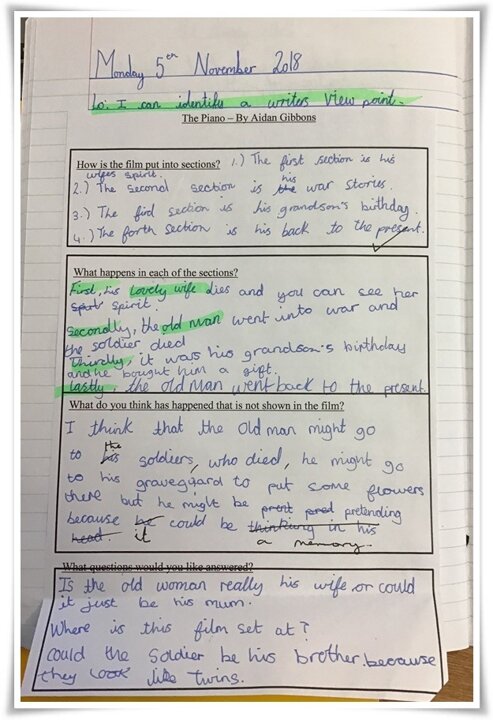 Monday 5th November 2018
Lo: I can identify a writers view point.
The Piano – By Aidan Gibbons
How is the film put into sections? 1.) The first section is his
wifes spirit.
2.) The second section is the his war stories.
3.) The fird section is his grandson's birthday.
4.) The forth section is his back to the present.
What happens in each of the sections?
First, his lovely wife dies and you can see her
spirit.
Secondly, the old man went into war and
the soldier died
Thirdly, it was his grandson's birthday
and he bought him a gift.
lastly, the old man went back to the present.
What do you think has happened that is not shown in the film?
I think that the old man might go
to his the soldiers, who died, he might go
to his graveyard to put some flowers
there but he might be pretending
because he it could be thinking in his
head. a memory.
What questions would you like answered?
Is the old woman really his wife or could
it just be his mum.
Where is this film set at?
could the soldier be his brother because
they look like twins.